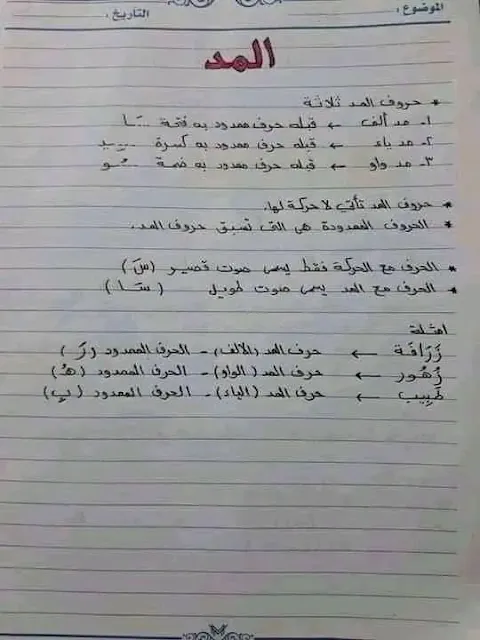 الموضوع :
التاريخ :
المد
* حروف المد ثلاثة
١- مد ألف ← قبله حرف ممدود به فتحة ـَـا
٢- مد ياء ← قبله حرف ممدود به كسرة ـِـيـ
٣- مد واو ← قبله حرف ممدود به ضمة ـُـو
* حروف المد تأتي لا حركة لها.
* الحروف الممدودة هي التي تسبق حروف المد.
* الحرف مع الحركة فقط يسمى صوت قصير (سَ)
* الحرف مع المد يسمى صوت طويل (سَـا)
امثلة
زَرَافَة ← حرف المد (الألف) - الحرف الممدود (رَ)
زُهُور ← حرف المد (الواو) - الحرف الممدود (هُـ)
طَبِيب ← حرف المد (الياء) - الحرف الممدود (بِ)